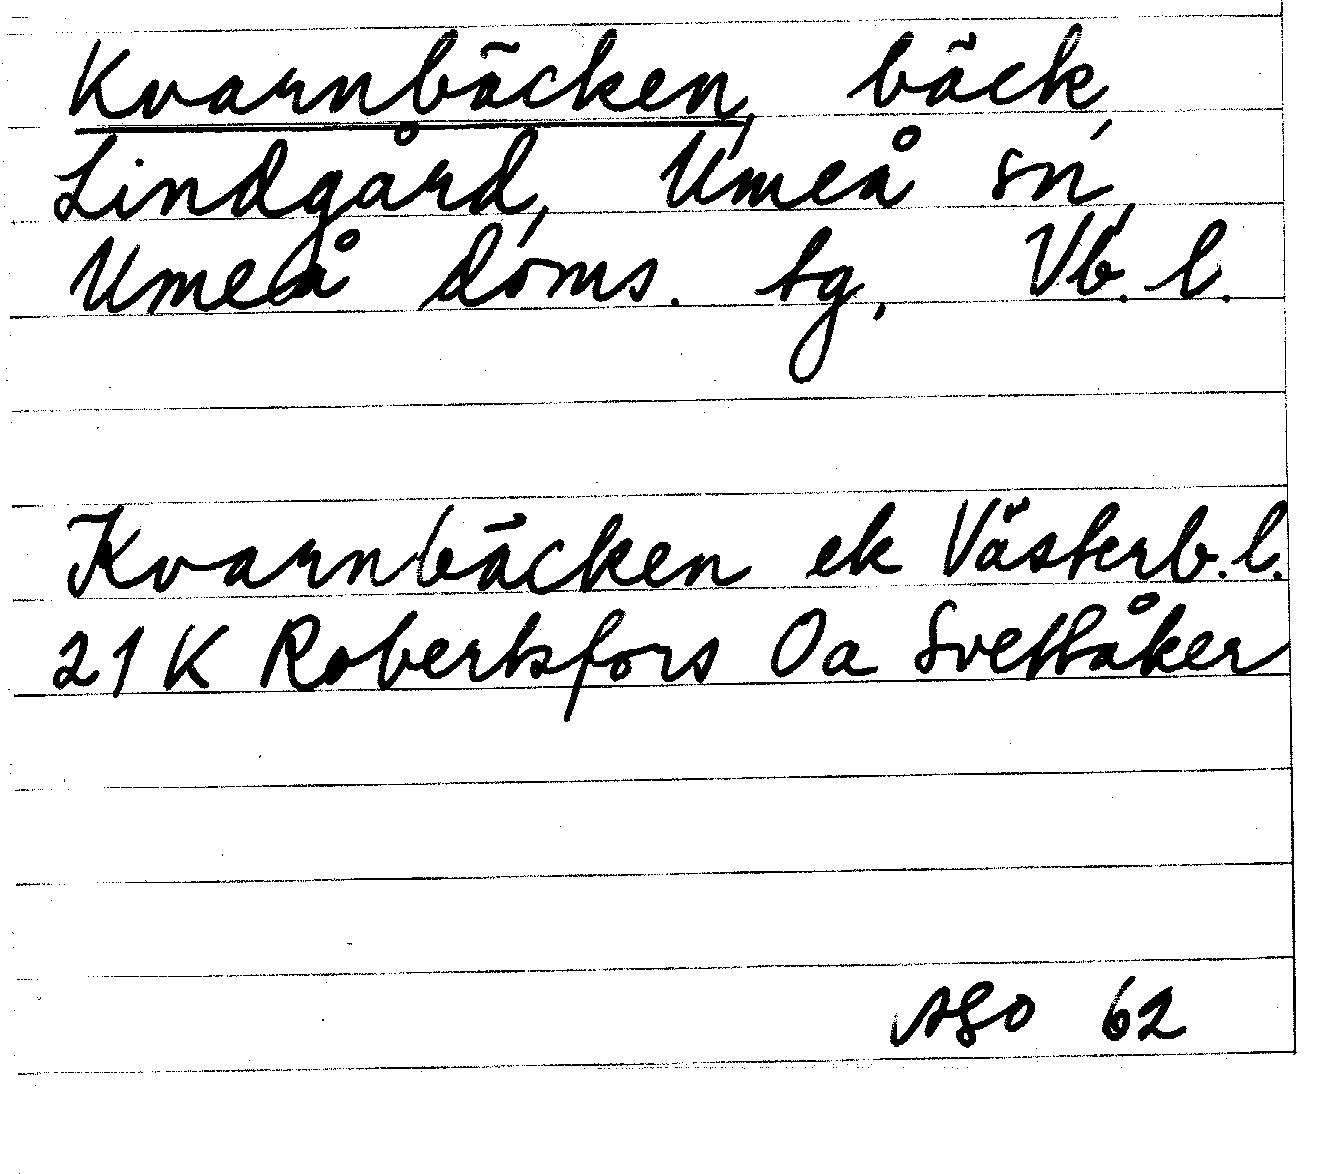 Kvarnbäcken, bäck,
Lindgård, Umeå sn,
Umeå doms. tg, Vb. l.
Kvarnbäcken ek Västerb. l.
21 K Robertsfors Oa Svettåker
ASO 62